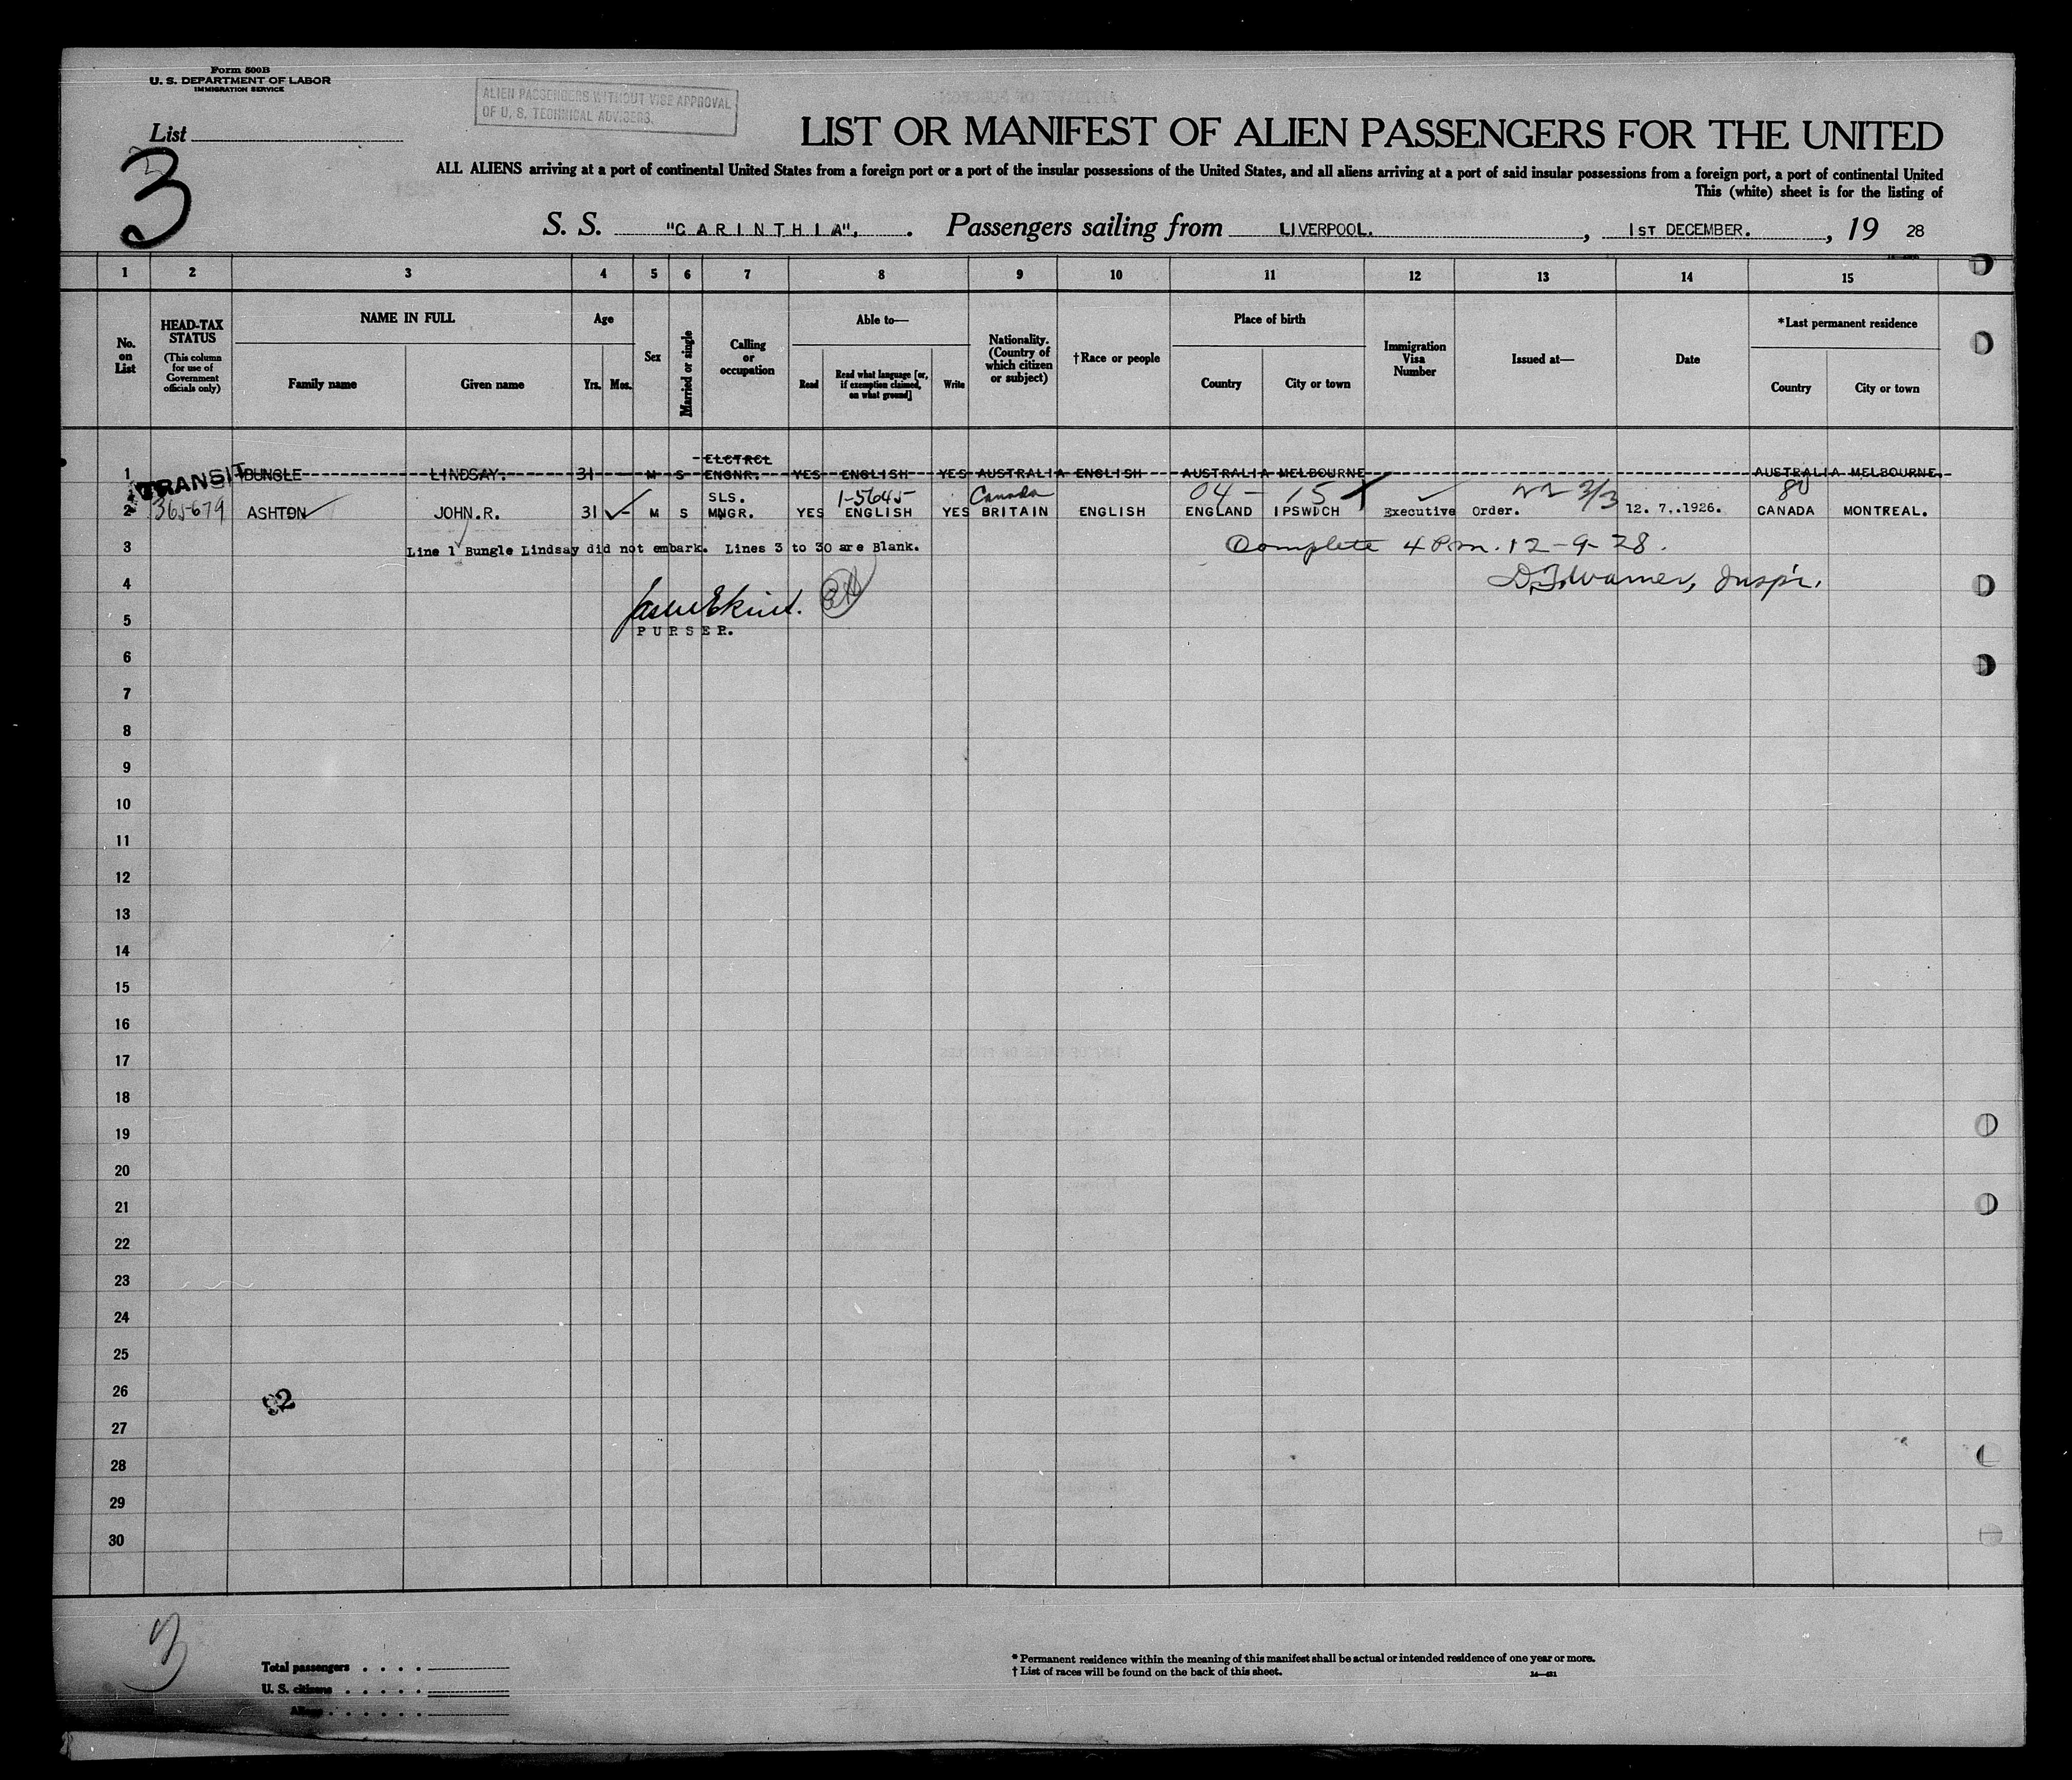 Form 500B
U. S. DEPARTMENT OF LABOR
IMMIGRATION SERVICE
ALIEN PASSENGERS WITHOUT VISE APPROVAL
OF U. S. TECHNICAL ADVISERS.
List
3
LIST OR MANIFEST OF ALIEN PASSENGERS FOR THE UNITED
ALL ALIENS arriving at a port of continental United States from a foreign port or a port of the insular possessions of the United States, and all aliens arriving at a port of said insular possessions from a foreign port, a port of continental United
This (white) sheet is for the listing of
S. S. "CARINTHIA", . Passengers sailing from LIVERPOOL. , 1ST DECEMBER. , 19 28
1 2 3 4 5 6 7 8 9 10 11 12 13 14 15
No. on List
HEAD-TAX STATUS (This column for use of Government officials only)
NAME IN FULL
Family name
Given name
Age
Yrs.
Mos.
Sex
Married or single
Calling or occupation
Able to—
Read
Read what language [or, if exemption claimed, on what ground]
Write
Nationality. (Country of which citizen or subject)
†Race or people
Place of birth
Country
City or town
Immigration Visa Number
Issued at—
Date
*Last permanent residence
Country
City or town
ELCTRCL
1 BUNGLE LINDSAY. 31 M S ENGNR. YES ENGLISH YES AUSTRALIA ENGLISH AUSTRALIA MELBOURNE AUSTRALIA MELBOURNE.
TRANSIT
SLS. 1-5645 Canada 04 - 15 3/3 80
2 365-679 ASHTON JOHN.R. 31 - M S MNGR. YES ENGLISH YES BRITAIN ENGLISH ENGLAND IPSWICH Executive Order. 12. 7..1926. CANADA MONTREAL.
3 Line 1 Bungle Lindsay did not embark. Lines 3 to 30 are Blank. Complete 4 P.m. 12-9-28.
4 Warner, Inspr.
5 PURSER.
6
7
8
9
10
11
12
13
14
15
16
17
18
19
20
21
22
23
24
25
26
92
27
28
29
30
3
Total passengers
U. S. citizens
Aliens
* Permanent residence within the meaning of this manifest shall be actual or intended residence of one year or more.
† List of races will be found on the back of this sheet.